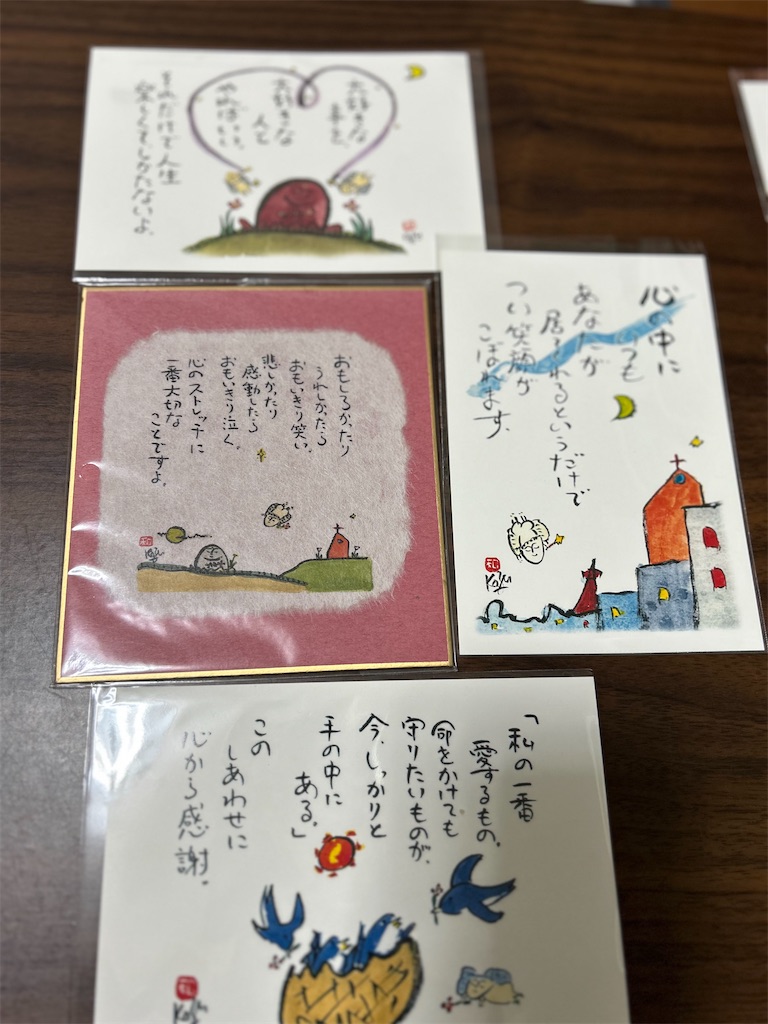 大好きな
事を、
大好きな
人と
やればいい、
それだけで人生
楽しくてしかたないよ。
おもしろかったり
うれしかったら
おもいきり笑い、
悲しかったり
感動したら
おもいきり泣く。
心のストレッチに
一番大切な
ことですよ。
心の中に
いつも
あなたが
居てくれるというだけで
つい笑顔が
こぼれます。
「私の一番
愛するもの、
命をかけても
守りたいものが、
今、しっかりと
手の中に
ある。」
この
しあわせに
心から感謝。